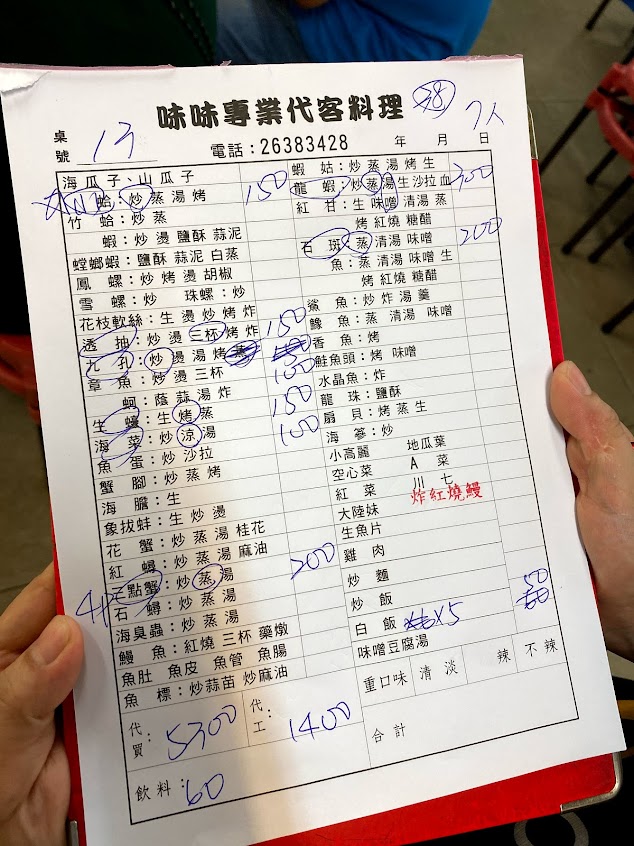 味味專業代客料理 38 7人
桌號 13 電話：26383428 年 月 日
海瓜子、山瓜子
蛤：炒蒸湯烤 150
竹 蛤：炒蒸
蝦：炒燙鹽酥蒜泥
螳螂蝦：鹽酥蒜泥白蒸
鳳 螺：炒烤燙胡椒
雪 螺：炒 珠螺：炒
花枝軟絲：生燙炒烤炸
透 抽：炒燙三杯烤炸 150
九 孔：炒燙湯烤蒸
章 魚：炒燙三杯 100
蚵：蔭蒜湯炸
生 蠔：生烤蒸 150
海 菜：炒涼湯 100
魚 蛋：炒沙拉
蟹 腳：炒蒸烤
海 膽：生
象拔蚌：生炒燙
花 蟹：炒蒸湯桂花
紅 蟳：炒蒸湯麻油
三點蟹：炒蒸湯 200
石 蟳：炒蒸湯
海臭蟲：炒蒸湯
鰻 魚：紅燒三杯藥燉
魚肚 魚皮 魚管 魚腸
魚 標：炒蒜苗炒麻油
代買：5300 代工：1400
飲料：60
蝦 姑：炒蒸湯烤生
龍 蝦：炒蒸湯生沙拉血 300
紅 甘：生味噌清湯蒸
烤紅燒糖醋
石 斑：蒸清湯味噌 200
魚：蒸清湯味噌生
烤紅燒糖醋
鯊 魚：炒炸湯羹
鱌 魚：蒸清湯味噌
香 魚：烤
鮭魚頭：烤 味噌
水晶魚：炸
龍 珠：鹽酥
扇 貝：烤蒸生
海 參：炒
小高麗 地瓜葉
空心菜 A 菜
紅 菜 川 七
大陸妹 炸紅燒鰻
生魚片
雞 肉
炒 麵
炒 飯
白 飯 X5 50
味噌豆腐湯
重口味 清淡 辣 不辣
合計